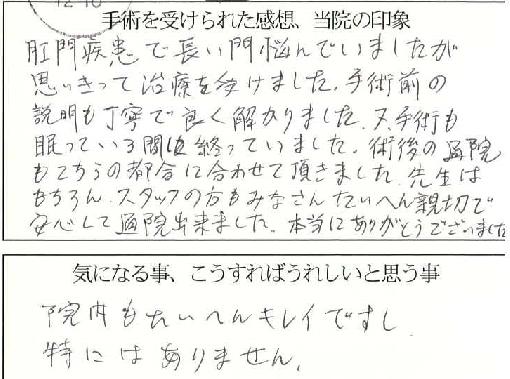 12.10
手術を受けられた感想、当院の印象
肛門疾患で長い間悩んでいましたが
思いきって治療を受けました。手術前の
説明も丁寧で良く解かりました。又手術も
眠っている間に終っていました。術後の通院
もこちらの都合に合わせて頂きました。先生は
もちろん、スタッフの方もみなさんたいへん親切で
安心して通院出来ました。本当にありがとうございました
気になる事、こうすればうれしいと思う事
院内もたいへんキレイですし
特にはありません。